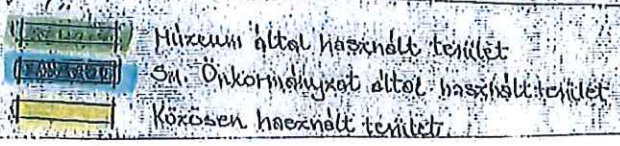 Múzeum által használt terület
Sm. Önkormányzat által használt terület
Közösen használt terület